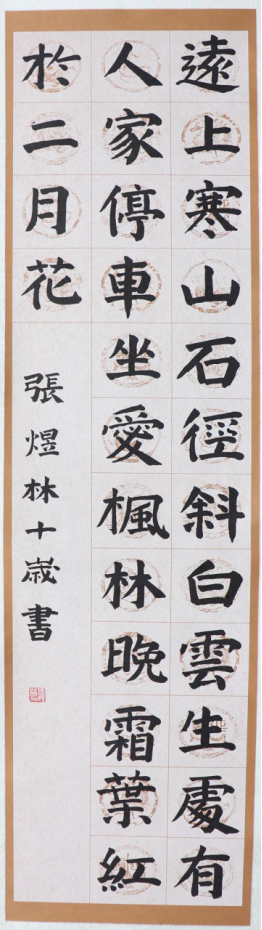 遠上寒山石徑斜白雲生處有
人家停車坐愛楓林晚霜葉紅
於二月花
張煜林十歲書